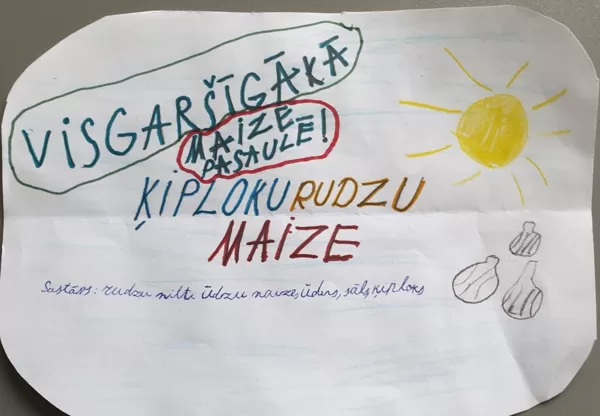 VISGARŠĪGĀKĀ
MAIZE
PASAULĒ!
ĶIPLOKU RUDZU
MAIZE
Sastāvs: rudzu milti ūdzu maize, ūdens, sāls, ķiploks